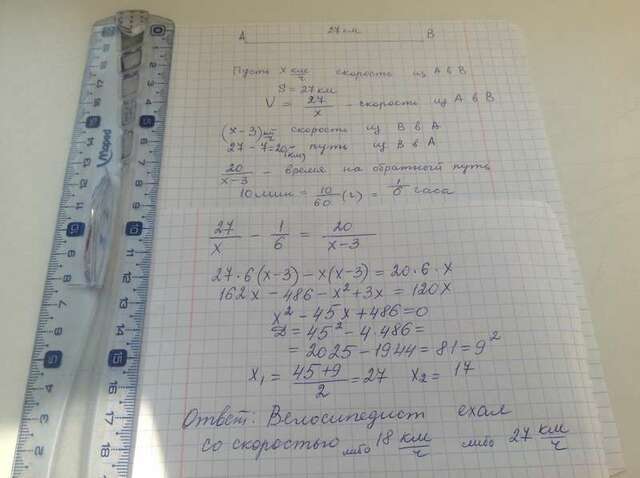 27 км
A B
Пусть x км/ч скорость из A в B
S = 27 км
V = 27/x - скорость из A в B
(x-3) км/ч скорость из B в A
27 - 7 = 20 (км) путь из B в A
20/(x-3) - время на обратный путь
10 мин = 10/60 (ч) = 1/6 часа
27/x - 1/6 = 20/(x-3)
27·6(x-3) - x(x-3) = 20·6·x
162x - 486 - x² + 3x = 120x
x² - 45x + 486 = 0
D = 45² - 4·486 =
= 2025 - 1944 = 81 = 9²
x₁ = (45+9)/2 = 27 x₂ = 17
Ответ: Велосипедист ехал
со скоростью либо 18 км/ч либо 27 км/ч
Maped